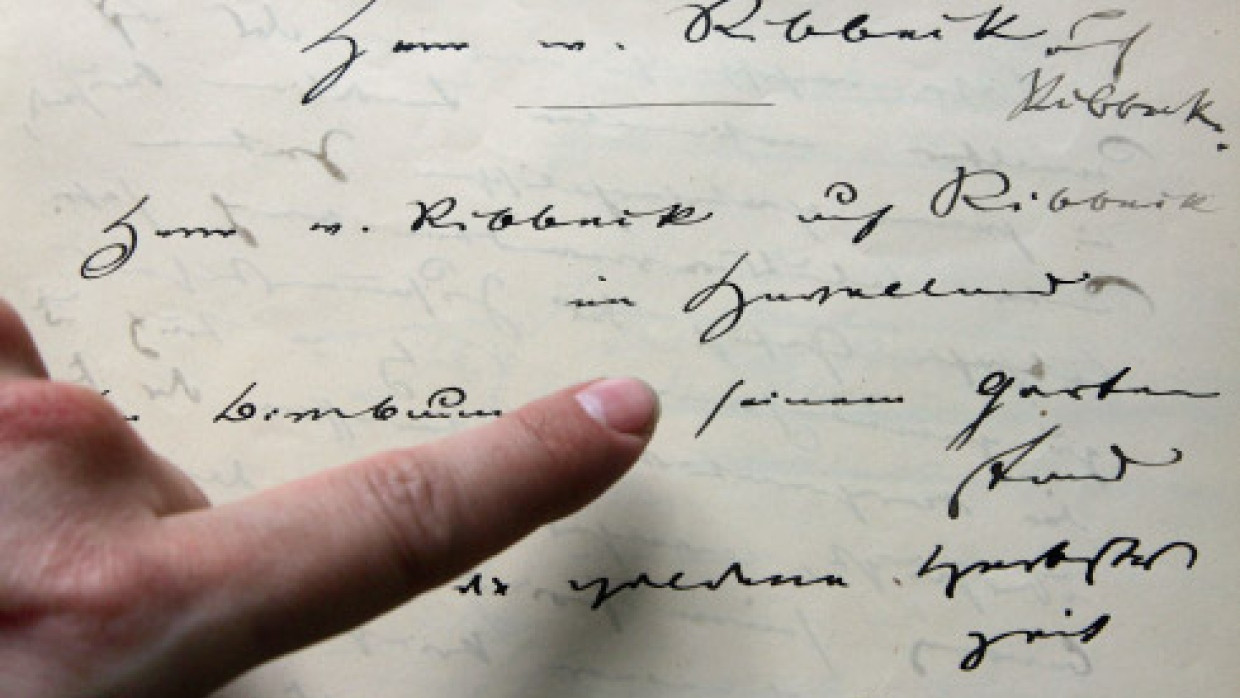 Herr v. Ribbeck auf
Ribbeck.
Herr v. Ribbeck auf Ribbeck
im Havelland
Birnbaum seinem Garten
stand
goldene Herbstes
zeit